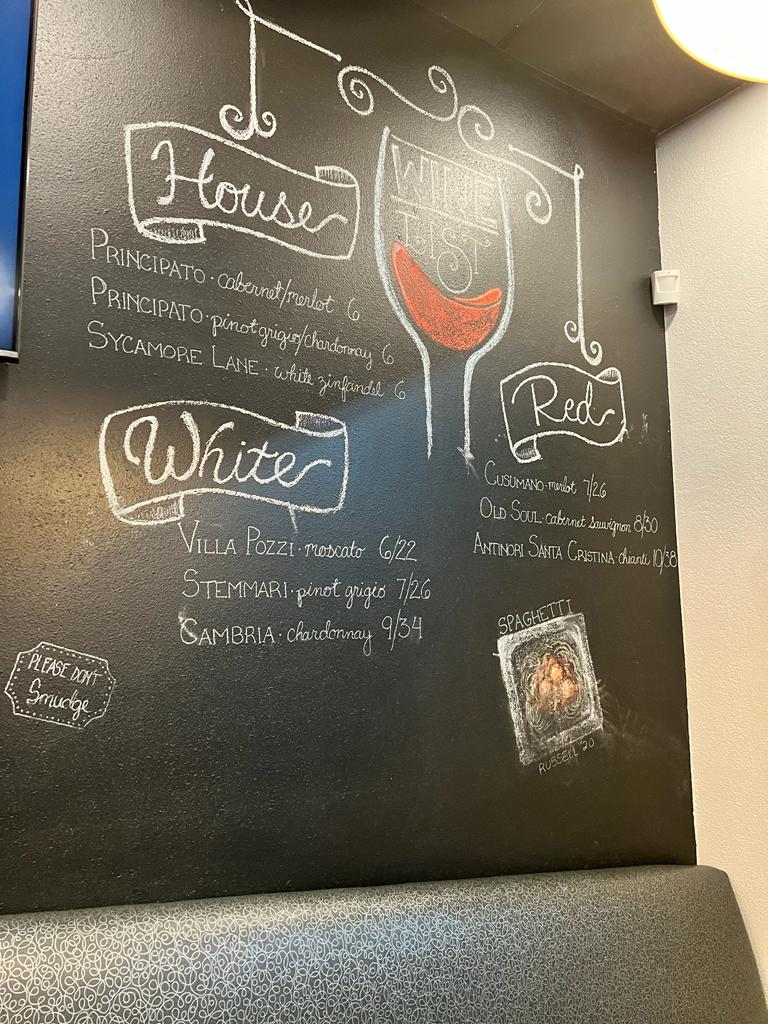 House
PRINCIPATO · cabernet/merlot 6
PRINCIPATO · pinot grigio/chardonnay 6
SYCAMORE LANE · white zinfandel 6
WINE
LIST
White
VILLA POZZI · moscato 6/22
STEMMARI · pinot grigio 7/26
CAMBRIA · chardonnay 9/34
Red
CUSUMANO · merlot 7/26
OLD SOUL · cabernet sauvignon 8/30
ANTINORI SANTA CRISTINA · chianti 10/38
PLEASE DON'T
Smudge
SPAGHETTI
RUSSELL '20